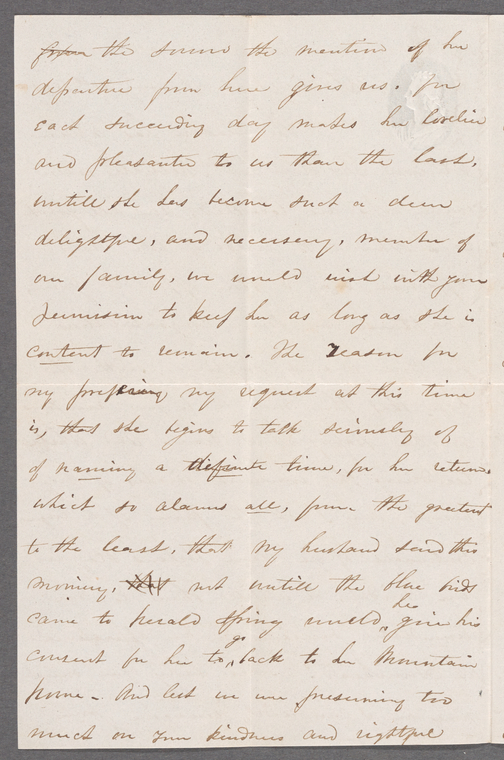 the sorrow the mention of her
departure from here gives us. for
each succeeding day makes her lovelier
and pleasanter to us than the last,
untill she has become such a dear
delightful, and necessary, member of
our family, we would wish with your
permission to keep her as long as she is
content to remain. The reason for
my prefering my request at this time
is, that she begins to talk seriously of
of naming a definite time, for her return
which so alarms all, from the greatest
to the least, that my husband said this
morning, not untill the blue birds
came to herald Spring would he give his
consent for her to go back to her Mountain
home - And lest we are presuming too
much on your kindness and rightful